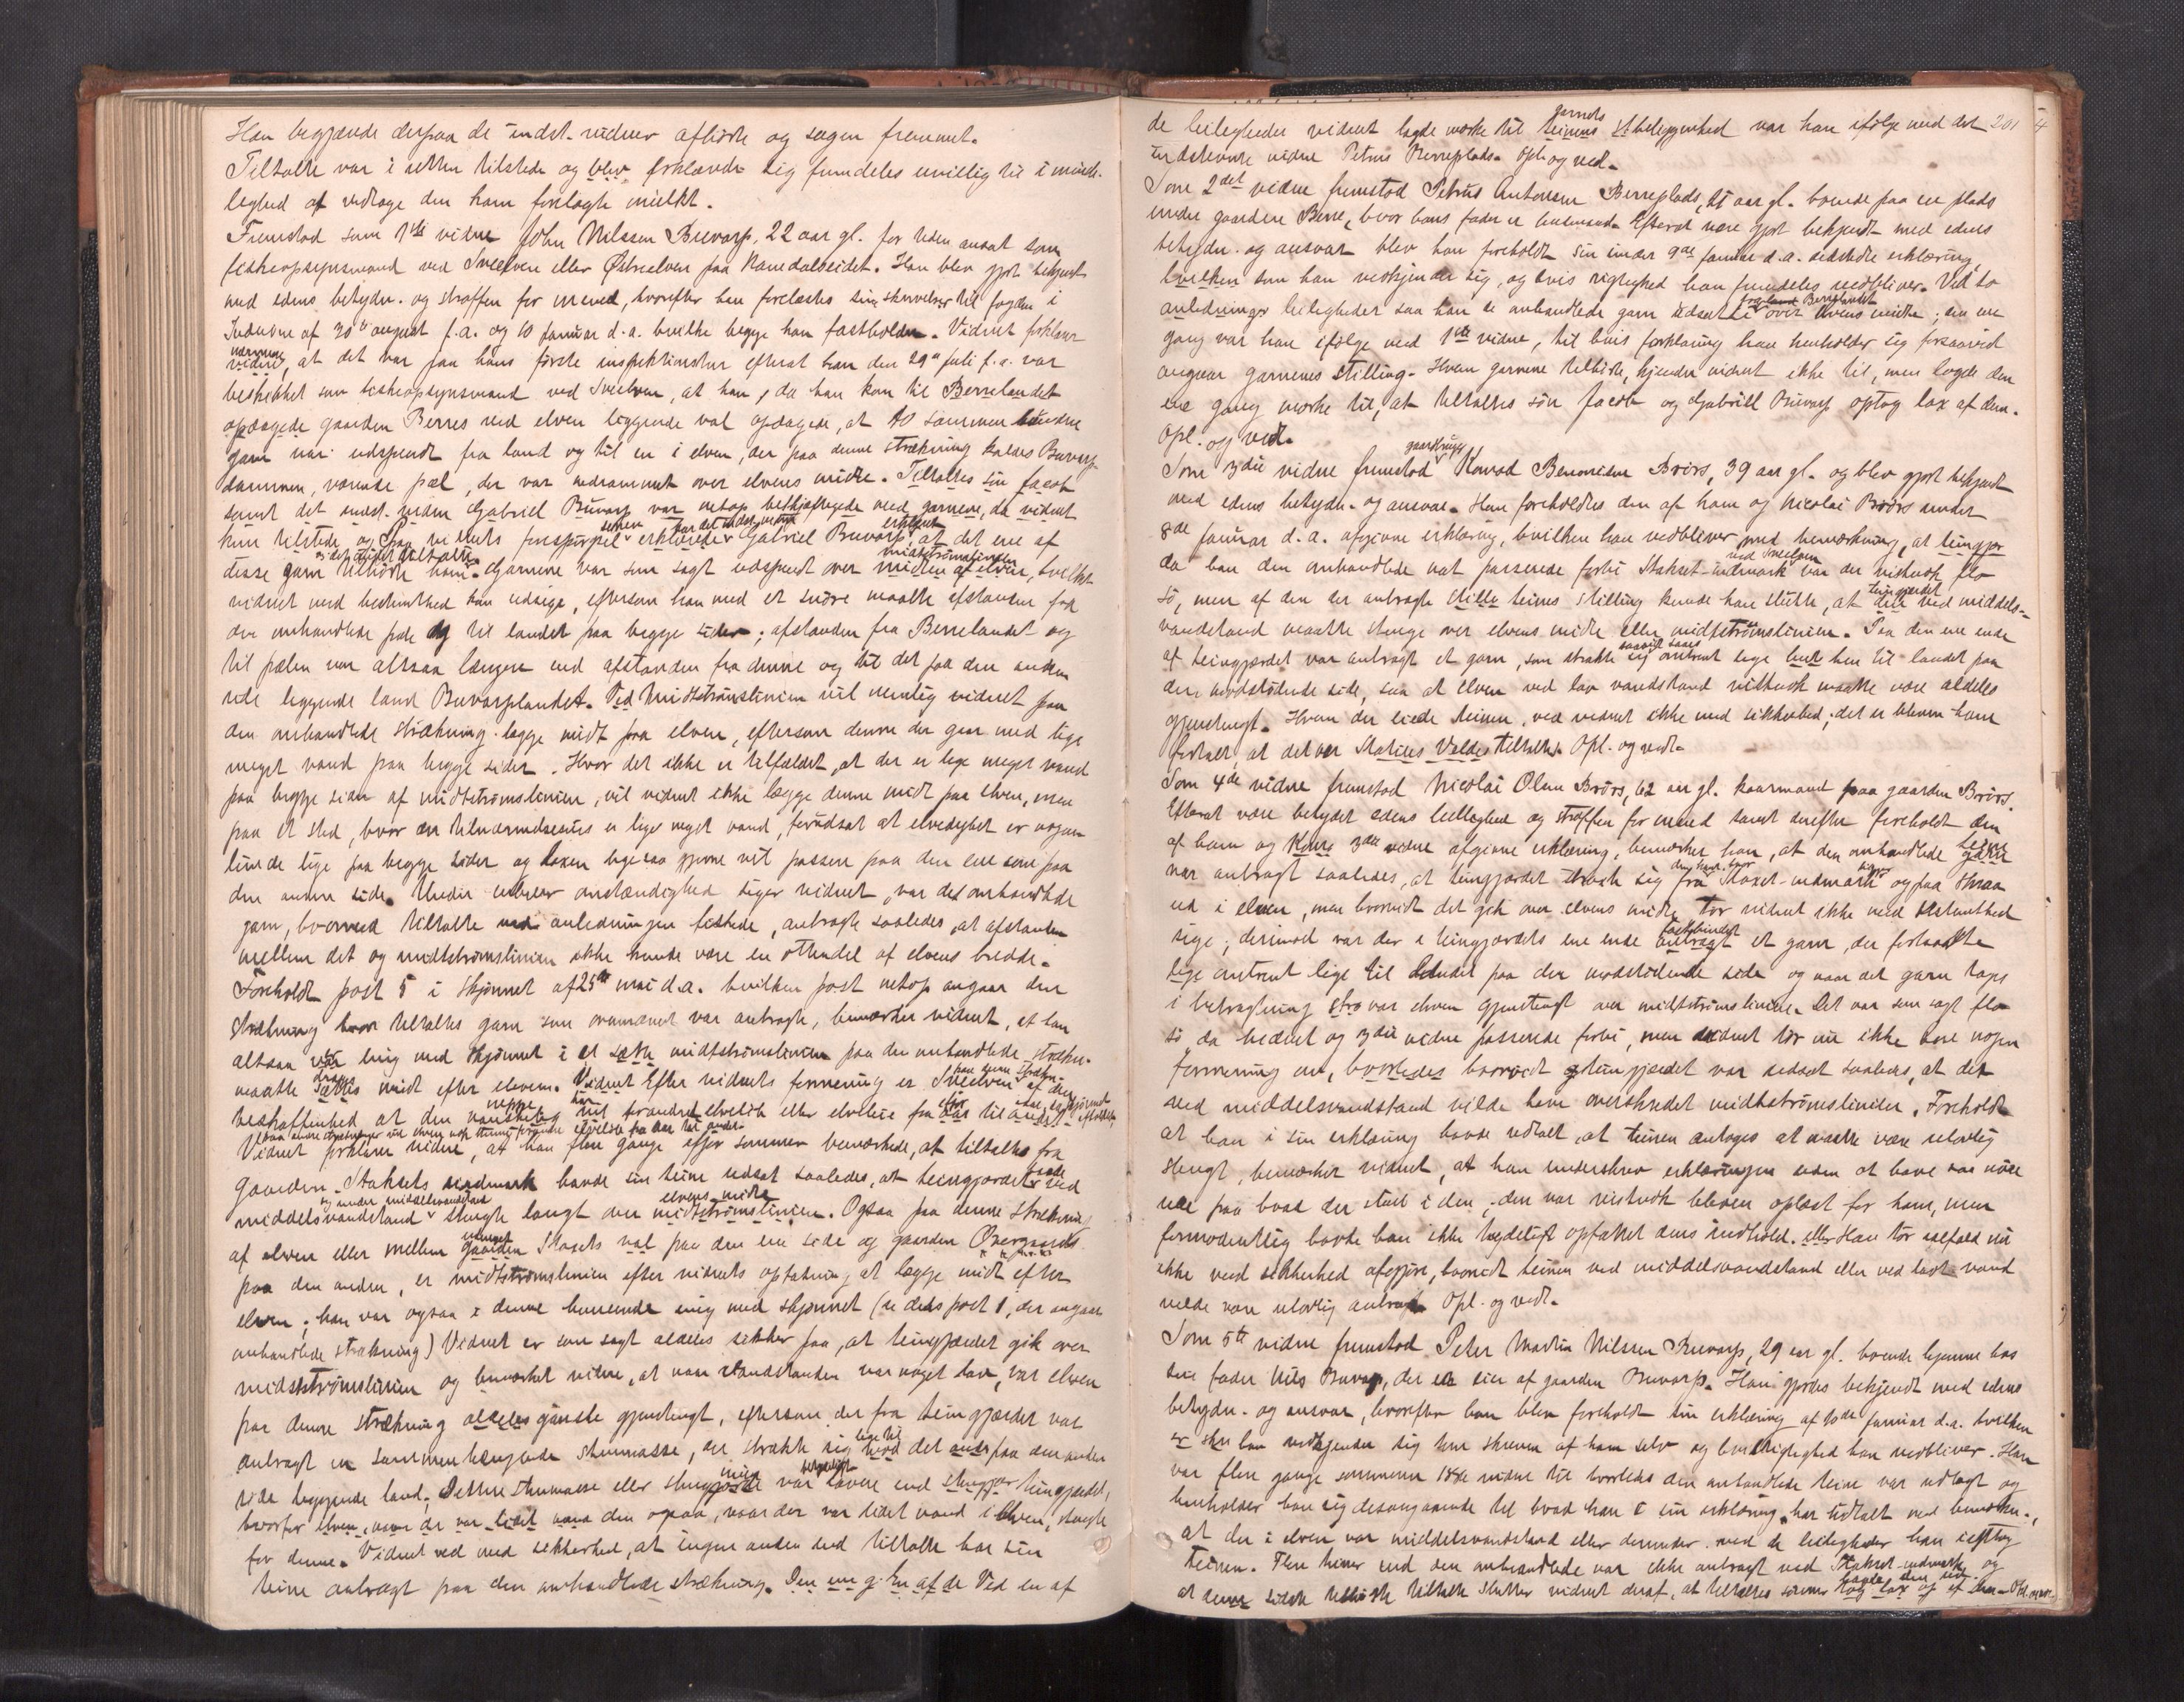 Han begjærede derpaa de indst. vidner afhørte og sagen fremmet.
Tiltalte var i retten tilstede og blev forklarede sig fremdeles uvillig til i mindelighed
at vedtage den ham forelagte mulkt.
Fremstod som 1ste vidne John Nilssen Buvarp, 22 aar gl. for tiden ansat som
fiskeopsynsmand ved Sveelven eller Østreelven paa Namdalseidet. Han blev gjort bekjendt
med edens betydn. og straffen for mened, hvorefter han forelæstes sine skrivelser til fogden i
Inderøen af 30te august f.a. og 10 januar d.a. hvilke begge han fastholder. Vidnet forklarer
nærmere, at det var paa hans første inspektionstur efterat han den 29de juli f.a. var
beskikket som fiskeopsynsmand ved Sveelven, at han, da han kom til Berrelandet
opdagede gaarden Berres ved elven liggende val opdagede, at to sammenbundne
garn var udspændt fra land og til en i elven, der paa denne strækning kaldes Buvarp-
dammen, værende pæl, der var nedrammet over elvens midte. Tiltaltes søn Jacob
samt det indst. vidne Gabriel Buvarp var netop beskjæftigede med garnene, da vidnet
kom tilstede og paa vidnets forespørgsel erklærede Gabriel Buvarp, at det ene af
disse garn tilhørte ham. Garnene var som sagt udspændt over midten af elven, hvilket
vidnet med bestemthed kan udsige, eftersom han med et snøre maalte afstanden fra
den omhandlede pæle og til landet paa begge sider; afstanden fra Berrelandet og
til pælen var altsaa længere end afstanden fra denne og til det paa den anden
side liggende land Buvarplandet. Ved Midtstrømslinien vil nemlig vidnet paa
den omhandlede strækning lægge midt paa elven, eftersom denne der gaar med lige
meget vand paa begge sider. Hvor det ikke er tilfældet, at der er lige meget vand
paa begge sider af midtstrømslinien, vil vidnet ikke lægge denne midt paa elven, men
paa et sted, hvor der tilnærmelsesvis er lige meget vand, forudsat at elvedybet er nogen-
lunde lige paa begge sider og laxen ligesaa gjerne vil passere paa den ene som paa
den anden side. Under enhver omstændighed siger vidnet, var det omhandlede
garn, hvormed tiltalte ved anledningen fiskede, anbragte saaledes, at afstanden
mellem det og midtstrømslinien ikke kunde være en ottendel af elvens bredde.
Foreholdt post 5 i skjønnet af 25de mai d.a. hvilken post netop angaar den
strækning hvor tiltaltes garn som ovenmeldt var anbragte, bemærker vidnet, at han
altsaa var enig med skjønnet i at sætte midtstrømslinien paa den omhandlede strækn.
maatte drages midt efter elven. Vidnet Efter vidnets formening er Sveelven af den
beskaffenhed at den neppe har forandret elveløb eller elveleie fra aar til andet
Vidnet forklarer videre, at han flere gange ifjor sommer bemærkede, at tiltalte fra
gaarden Staksets vedmark havde sin teine udsat saaledes, at teingjærdet ved
middelsvandstand stengte langt over elvens midte midtstrømslinien. Ogsaa paa denne strækning
af elven eller mellem gaarden Staxets val paa den ene side og gaarden Øvergaards
paa den anden, er midtstrømslinien efter vidnets opfatning at lægge midt efter
elven; han var ogsaa i denne henseende enig med skjønnet (se dets post 1, der angaar
omhandlede strækning) Vidnet er som sagt aldeles sikker paa, at teingjærdet gik over
midtstrømslinien og bemærket videre, at naar vandstanden var noget lav, var elven
paa denne strækning aldeles ganske gjenstengt, eftersom der fra teingjærdet var
anbragt en sammenhængende stenmasse, der strakte sig lige til mod det andet paa den anden
side liggende land. Denne stenmasse eller stengjærde var lavere end stengjær teingjærdet,
hvorfor elven, naar der var lidet vand den ogsaa, naar der var lidet vand i elven, stengte
for denne. Vidnet ved med sikkerhed, at ingen anden end tiltalte har sin
teine anbragt paa den omhandlede strækning. Den ene g. En af de Ved en af
de leiligheder vidnet lagde mærke til garnets teinens st beliggenhed var han ifølge med det 201 4
indstevnte vidne Petrus Berreplads. Opl. og ved.
Som 2det vidne fremstod Petrus Antonsen Berreplads, 21 aar gl. boende paa en plads
under gaarden Berre, hvor hans fader er husmand. Efterat være gjort bekjendt med edens
betydn. og ansvar blev han foreholdt sin under 9de januar d.a. udstedte erklæring,
hvilken som han vedkjender sig, og hvis rigtighed han fremdeles vedbliver. Ved to
anledninger leiligheder saa han de omhandlede garn udsat fra land Berrelandet over elvens midte; den ene
gang var han ifølge med 1ste vidne, til hvis forklaring han henholder sig forsaavidt
angaar garnenes stilling. Hvem garnene tilhørte, kjender vidnet ikke til, men lagde den
ene gang mærke til, at tiltaltes søn Jacob og Gabriel Buvarp optog lax af dem.
Opl. og ved.
Som 3die vidne fremstod gaardbruger Konrad Benoniesen Brørs, 39 aar gl. og blev gjort bekjendt
med edens betydn. og ansvar. Han foreholdtes den af ham og Nicolai Brørs under
8de januar d.a. afgivne erklæring, hvilken han vedbliver med bemærkning, at teingjær
da han den omhandlede nat passerede forbi Stakset-vedmark ved Sveelven var der vistnok flo
sø, men af den der anbragte stille teines stilling kunde han slutte, at teingjærdet den ved middels-
vandstand maatte stenge over elvens midte eller midtstrømslinien. Paa den ene ende
af teingjærdet var anbragt et garn, som strakte sig omtrent lige hent hen til landet paa
den modstødende side, saa at elven ved lav vandstand vistnok maatte være aldeles
gjenstengt. Hvem der eiede teinen, ved vidnet ikke med sikkerhed; det er bleven ham
fortalt, at det var Statius Valdes tiltalte. Opl. og ved.
Som 4de vidne fremstod Nicolai Olsen Brørs, 62 aar gl. kaarmand paa gaarden Brørs.
Efterat være betydet edens hellighed og straffen for mened samt derefter foreholdt den
af ham og Konr 3die vidne afgivne erklæring, bemærker han, at den omhandlede teine garn
var anbragt saaledes, at teingjærdet strakte sig fra Staxet-vedmark og paa skraa
ud i elven, men hvorvidt det gik over elvens midte tør vidnet ikke med bestemthed
sige; derimod var der i teingjærdets ene ende fastbundet anbragt et garn, der fortsatte
lige omtrent lige til landet paa den modstødende side og naar det garn tages
i betragtning stra var elven gjenstengt over midtstrømslinien. Det var som sagt flo
sø da vidnet og 3die vidne passerede forbi, men vidnet tør nu ikke have nogen
formening om, hvorledes hvorvidt gsteingjærdet var udsat saaledes, at det
ved middelsvandstand vilde have overskredet midtstrømslinien. Foreholdt
at han i sin erklæring havde udtalt, at teinen antages at maatte være ulovlig
stengt, bemærker vidnet, at han underskrev erklæringen uden at have saa nøie
rede paa hvad der stod i den; den var vistnok bleven oplæst for ham, men
formodentlig havde han ikke tydeligt opfattet dens indhold. eller Han tør ialfald nu
ikke med sikkerhed afgjøre, hvorvidt teinen ved middelsvandstand eller ved lavt vand
vilde være ulovlig anbragt. Opl. og vedt.
Som 5te vidne fremstod Peter Martin Nilssen Buvarp, 29 aar gl. boende hjemme hos
sin fader Nils Buvarp, der er eier af gaarden Buvarp. Han gjordes bekjendt med edens
betydn. og ansvar, hvorefter han blev foreholdt sin erklæring af 10de januar d.a. hvilken
er skr han vedkjender sig som skreven af ham selv og hvis rigtighed han vedbliver. Han
var flere gange sommeren 18 vidne til hvorledes den omhandlede teine var udlagt og
henholder han sig desangaaende til hvad han i sin erklæring har udtalt med bemærkn.,
at der i elven var middelsvandstand eller derunder ved de leiligheder han iagttog
teinen. Flere teiner end den omhandlede var ikke anbragt ved Stakset-vedmark og
at denne sidste tilhørte tiltalte slutter vidnet deraf, at tiltaltes sønner tog lax op af den. Opl. og ved.